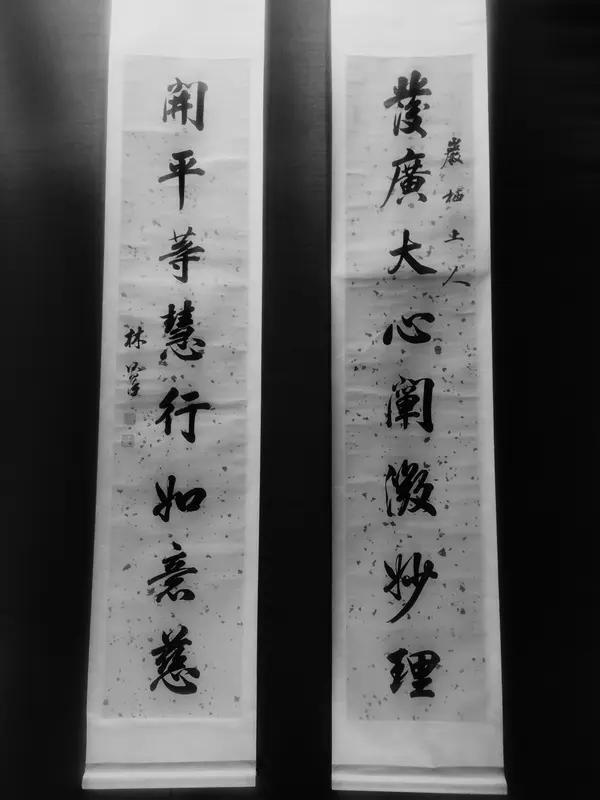 巖栖上人
發廣大心闡微妙理
開平等慧行如意慈
林則徐